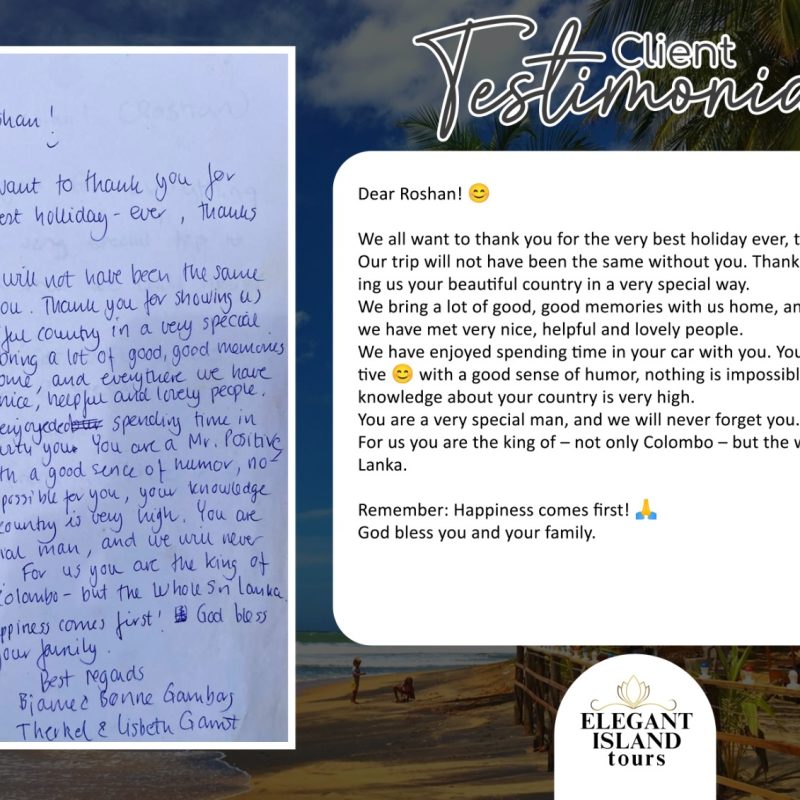 shan!
want to thank you for
est holliday - ever, thanks
will not have been the same
ou. Thank you for showing us
ful country in a very special
bring a lot of good, good memories
ome, and everythere we have
nice, helpful and lovely people.
enjoyed spending time in
you. You are a Mr. Positive
th a good sence of humor, no-
possible for you, your knowledge
country is very high. You are
ial man, and we will never
For us you are the king of
Colombo - but the whole Sri Lanka.
ppiness comes first! God bless
your family.
Best regards
Bonne
& Lisbeth
Client
Testimonia
Dear Roshan! 😊
We all want to thank you for the very best holiday ever, t
Our trip will not have been the same without you. Thank
ing us your beautiful country in a very special way.
We bring a lot of good, good memories with us home, an
we have met very nice, helpful and lovely people.
We have enjoyed spending time in your car with you. You
tive 😊 with a good sense of humor, nothing is impossibl
knowledge about your country is very high.
You are a very special man, and we will never forget you.
For us you are the king of – not only Colombo – but the w
Lanka.
Remember: Happiness comes first! 🙏
God bless you and your family.
ELEGANT
ISLAND
tours